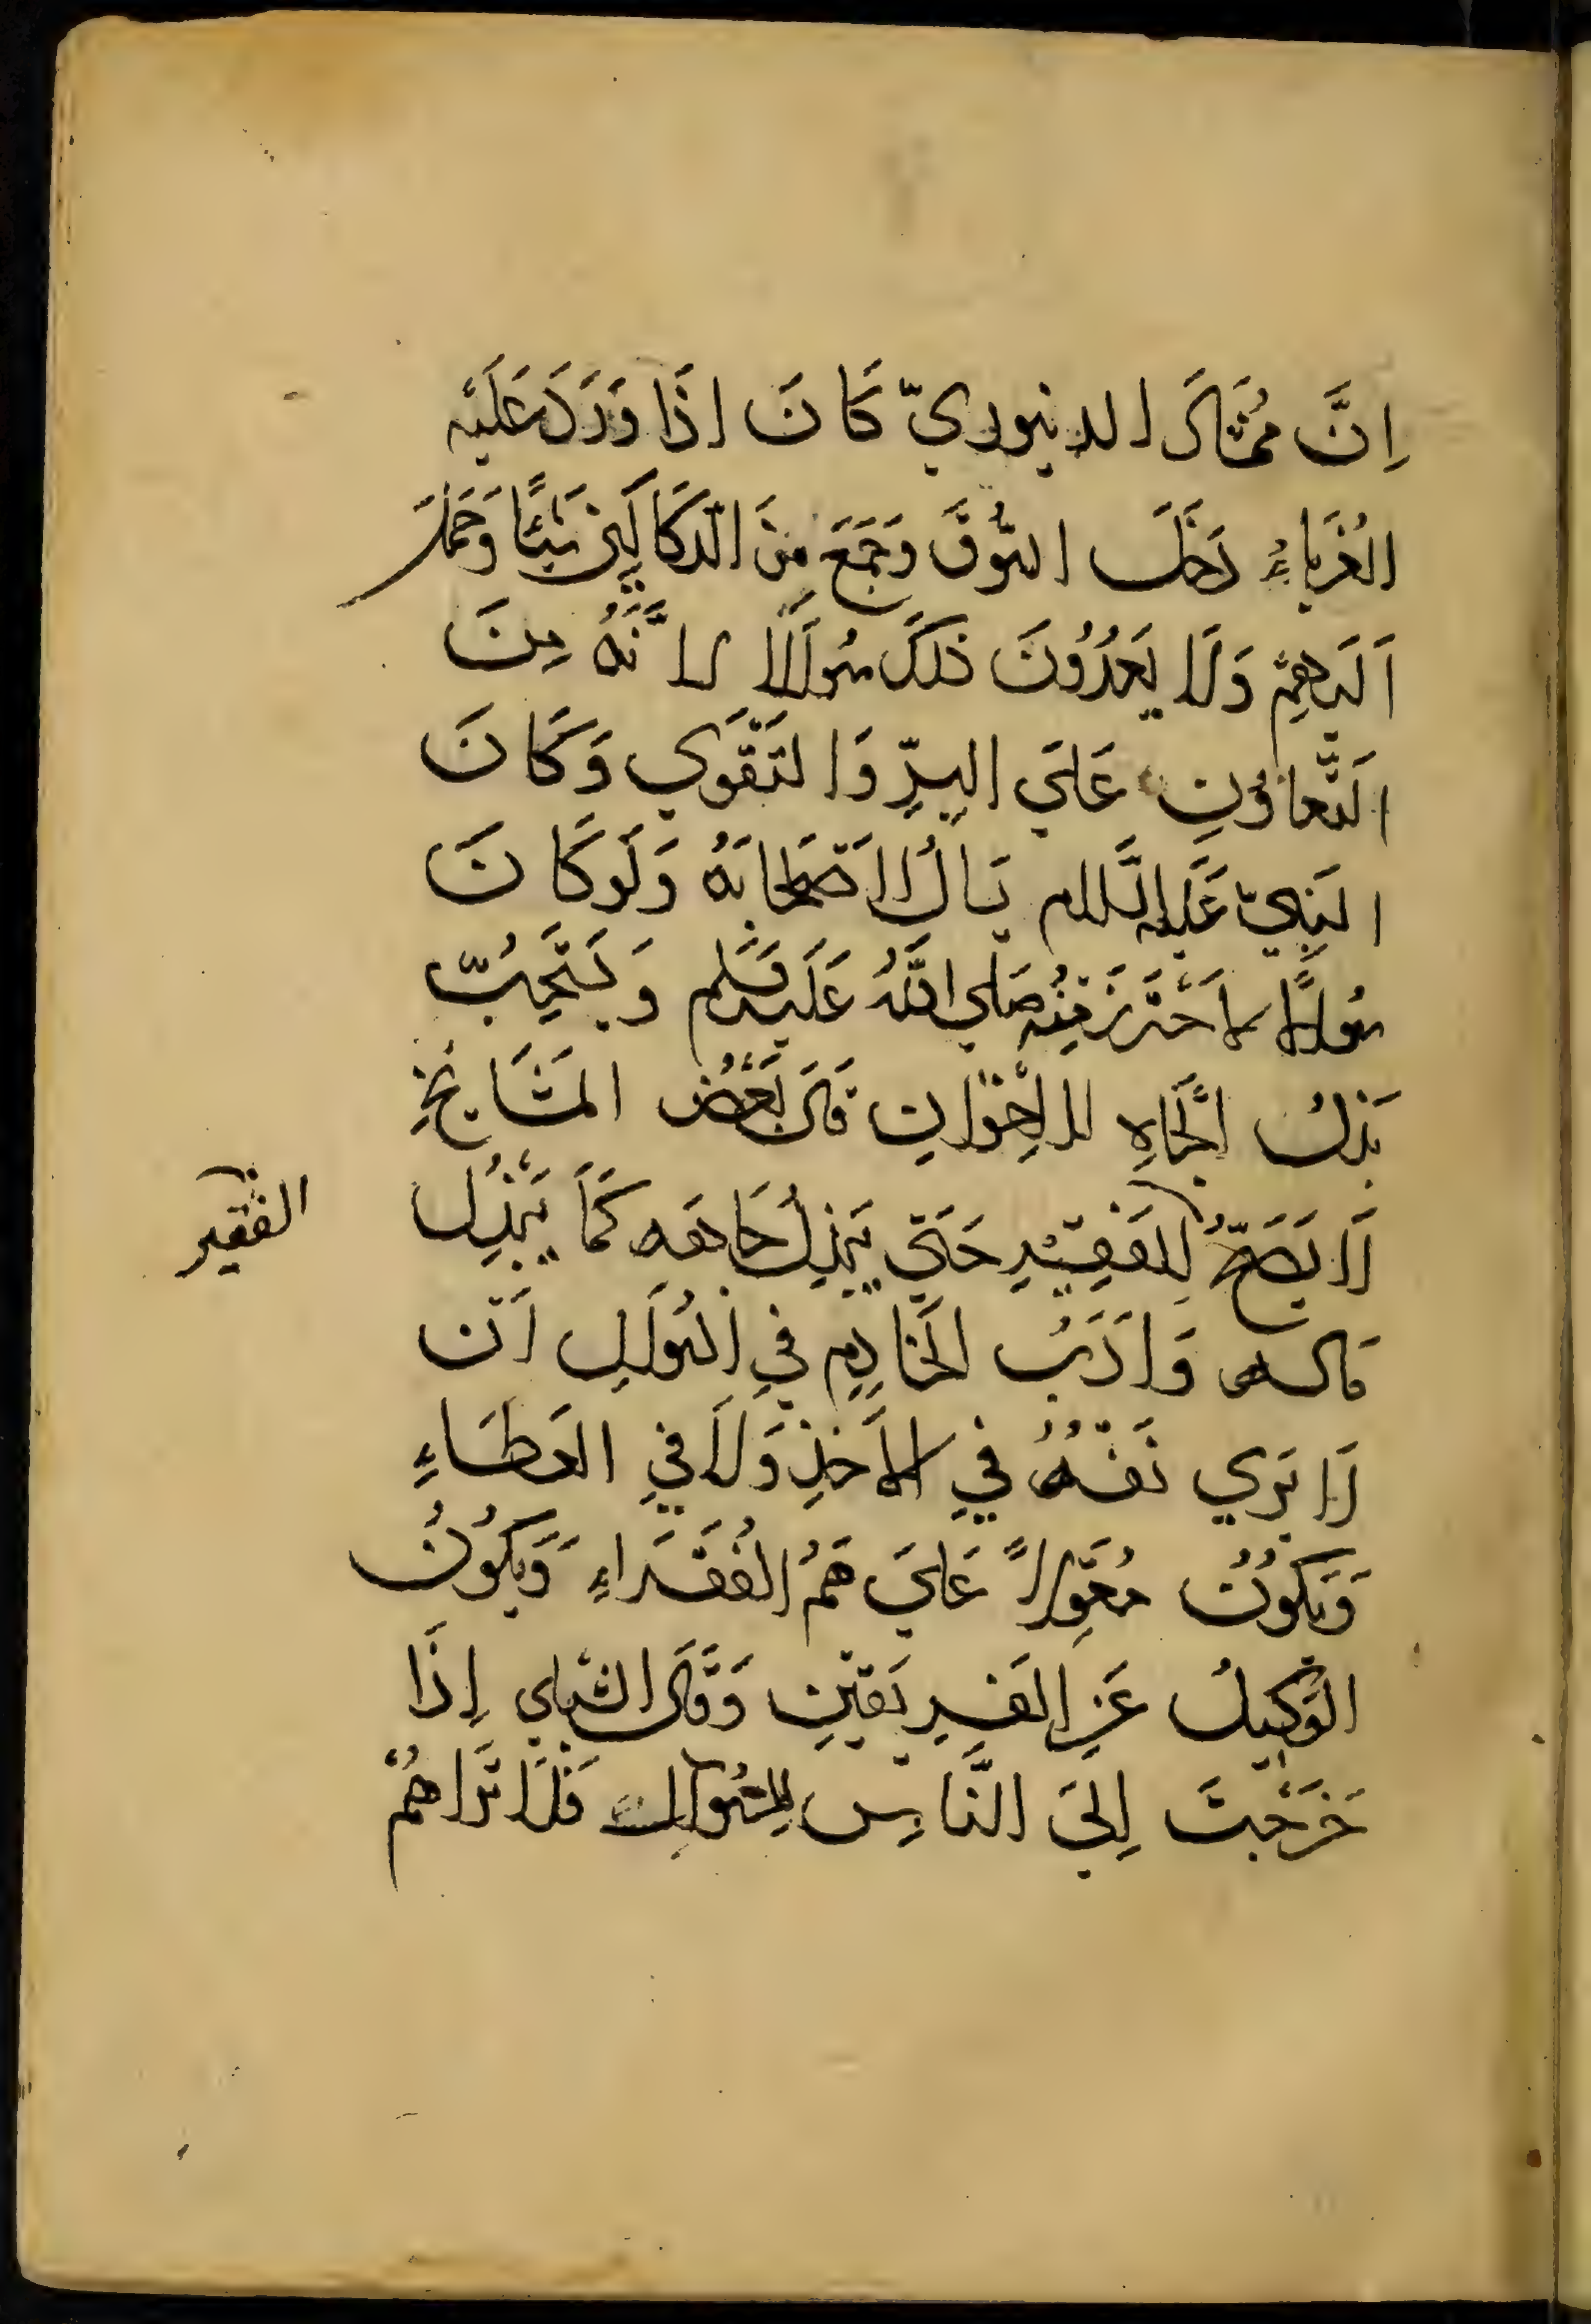 اِنَّ مُمْشَادَ الدينوريّ كَانَ اذَا وَرَدَ عَلَيْه
الغُرَبَاءُ دَخَلَ السُّوقَ وَجَمَعَ مِنَ الدَّكَاكِينِ شَيْئًا وَحَمَلَ
اَلَيهِمْ وَلَا يَعُدُّونَ ذلكَ سُوَالًا لاَنَّهُ مِنَ
التَّعَاوُنِ عَلَي البِرِّ وَالتَقْوَي وَكَانَ
النَبِيّ عَلَيه السَّلام يَسالُ لاَصْحَابَهُ وَلَو كَانَ
سُوالًا لاَحْتَرَزَ مِنْهُ صَلي اللَّهُ عَلَيه وسَلم وَيَسْتَحِبّ
بَذلُ الجَاهِ للاِخْوَانِ قَالَ بَعْضُ المَشَايِخِ
لَا يَصَحّ لِلفَقِيْرِ حَتَي يَبْذِلَ جَاهَه كَمَا يَبْذِل
مَاله وَاَدَبُ الخَادِمِ فِي السُوَالِ اَن
لَا يَرَي نَفسَهُ فِي الاَخذِ وَلَا فِي العَطَاءِ
وَيَكونُ مُعَوِّلاً عَلَيَ هَمّ الفُقَرَاءِ وَيَكُونُ
الوَكِيلُ عَنِ الفَرِيقَيْنِ وَقَالَ الشِبلي اِذَا
خَرَجْتَ اِلَيَ النَّاسِ لِلسُوَالِ فَلَا تَرَاهُمْ
الفقير